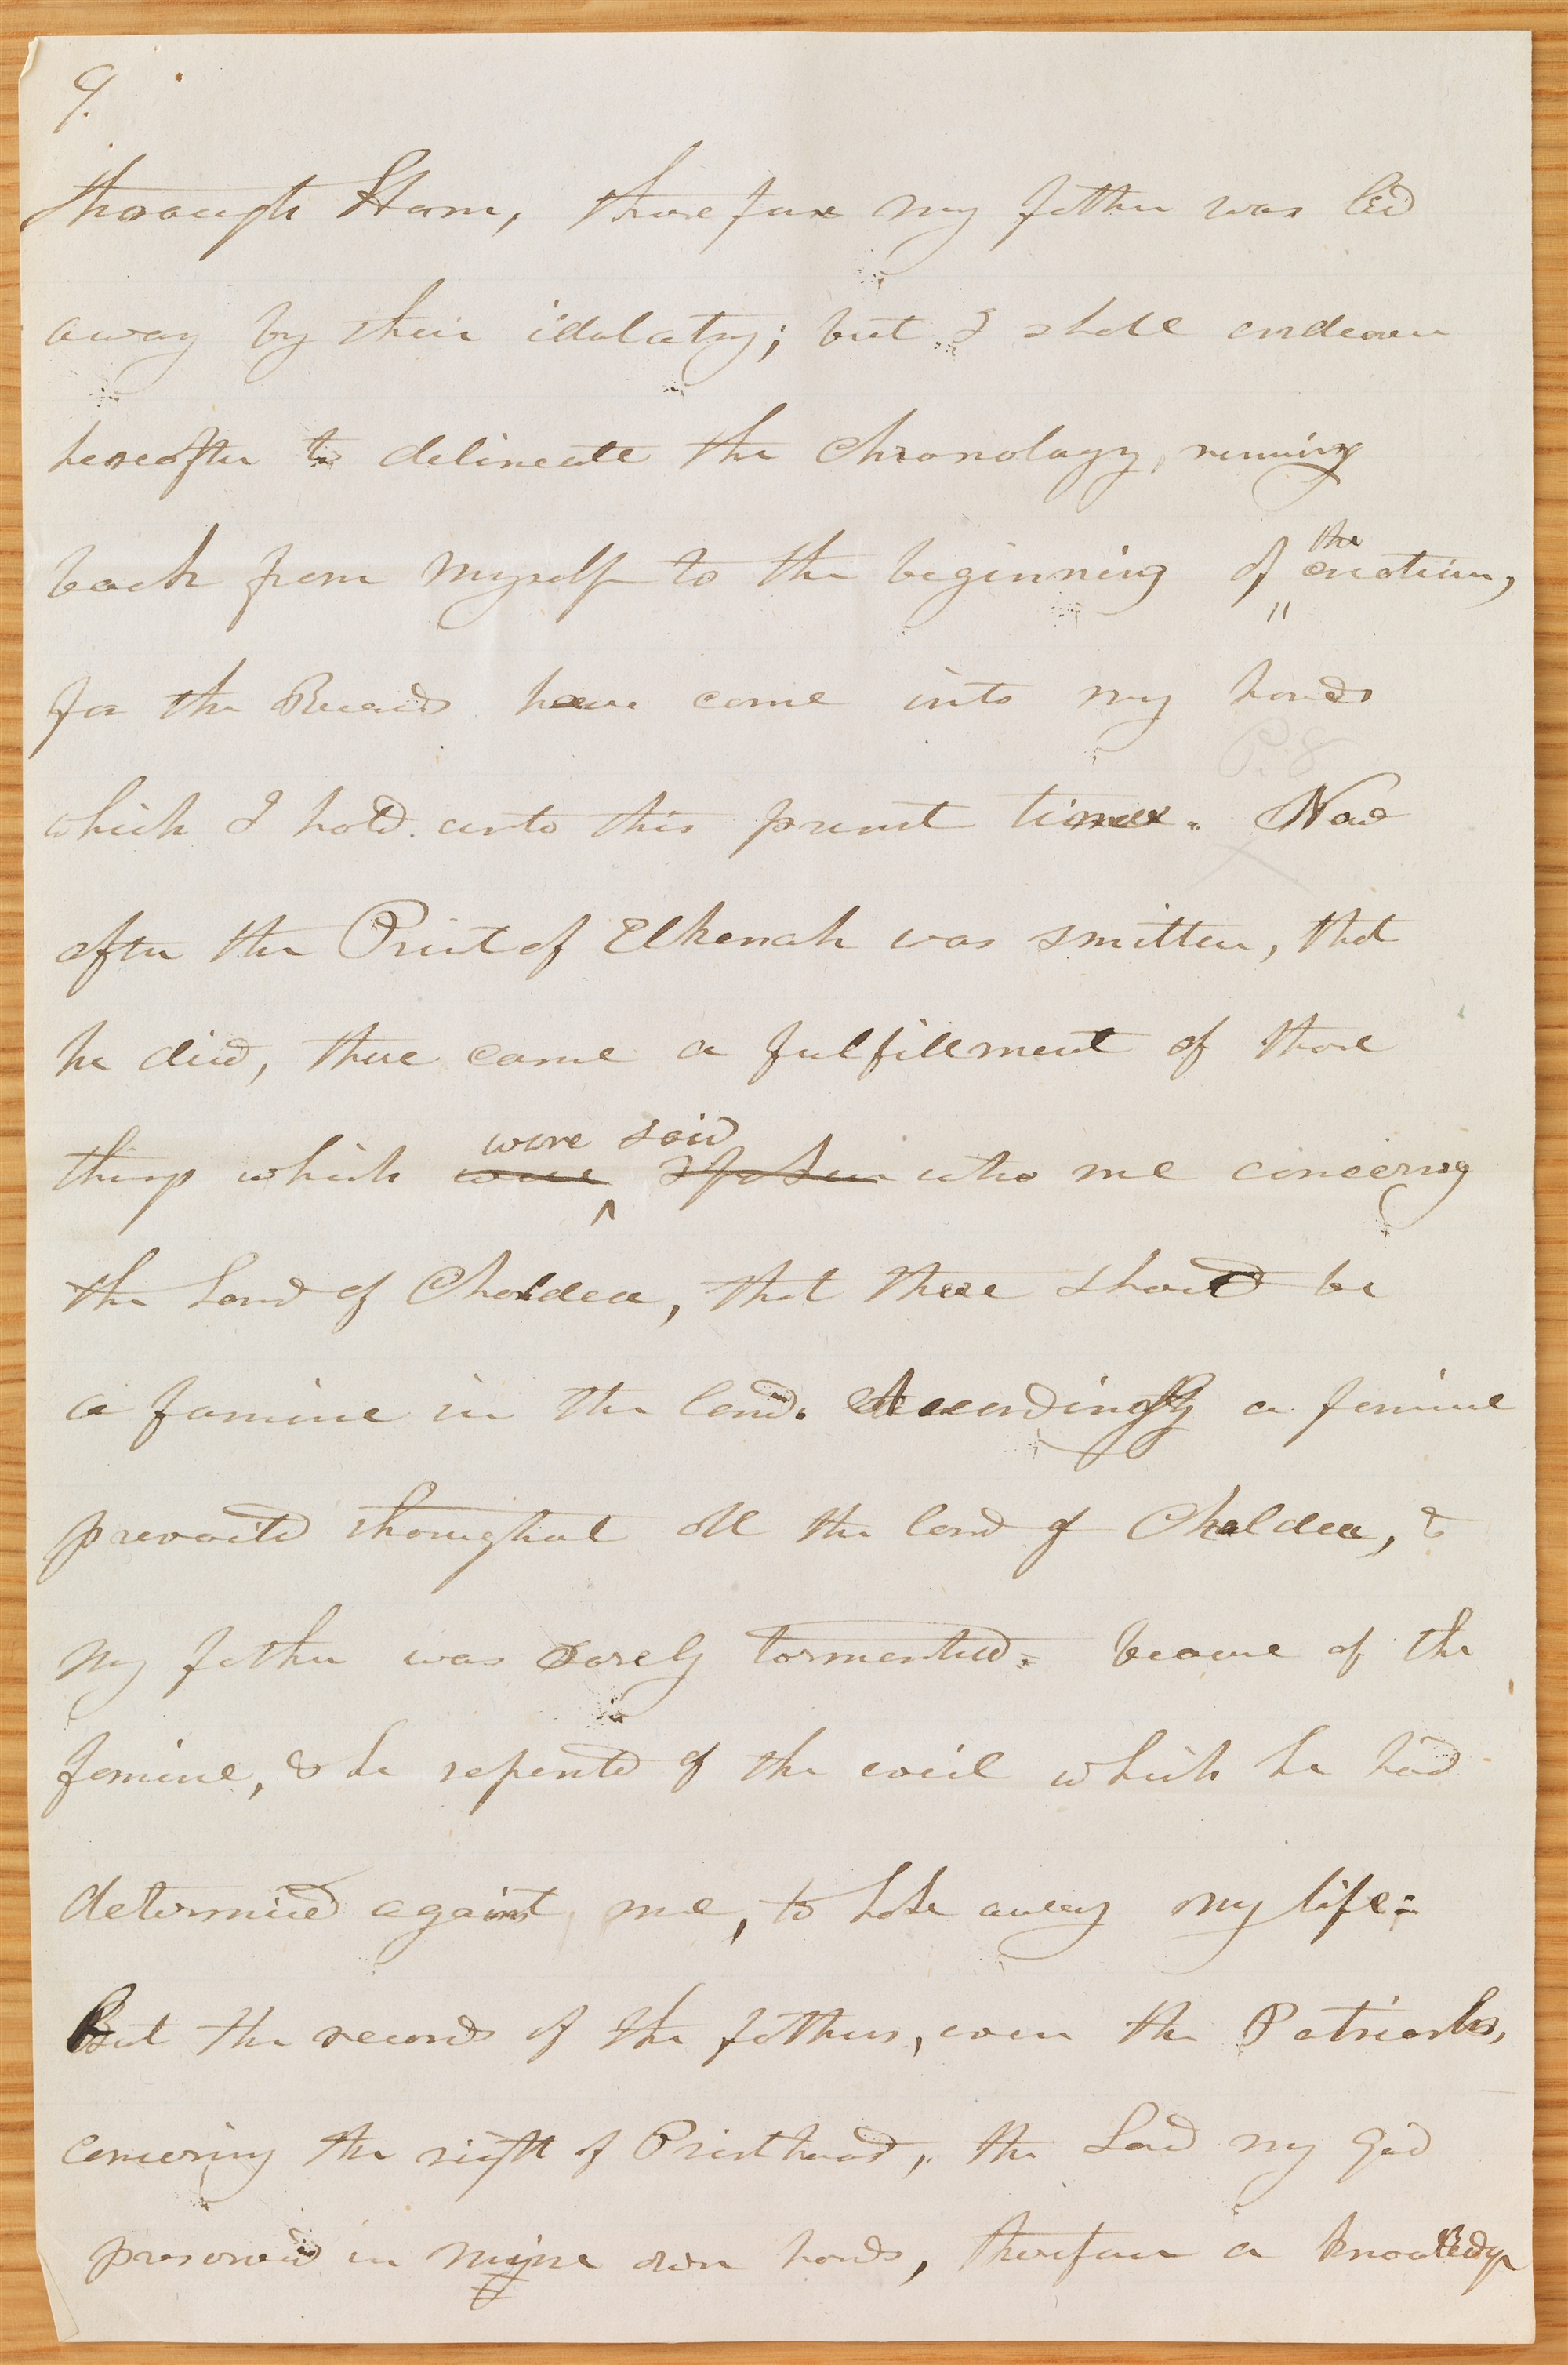 9.
through Ham, therefore my father was led
away by their idolatry; but I shall endeavor
hereafter to delineate the Chronology, running
back from myself to the beginning of the creation,
for the Records have come into my hands
P. 8
which I hold unto this present time. Now
after the Priest of Elkenah was smitten, that
he died, there came a fulfillment of those
were said
things which were spoken unto me concerning
the Land of Chaldea, that there should be
a famine in the land. Accordingly a famine
prevailed throughout all the land of Chaldea, &
my father was sorely tormented. because of the
famine, & he repented of the evil which he had
determined against me, to take away my life.
But the records of the fathers, even the Patriarchs,
concerning the right of Priesthood, the Lord my God
preserved in mine own hands, therefore a knowledge